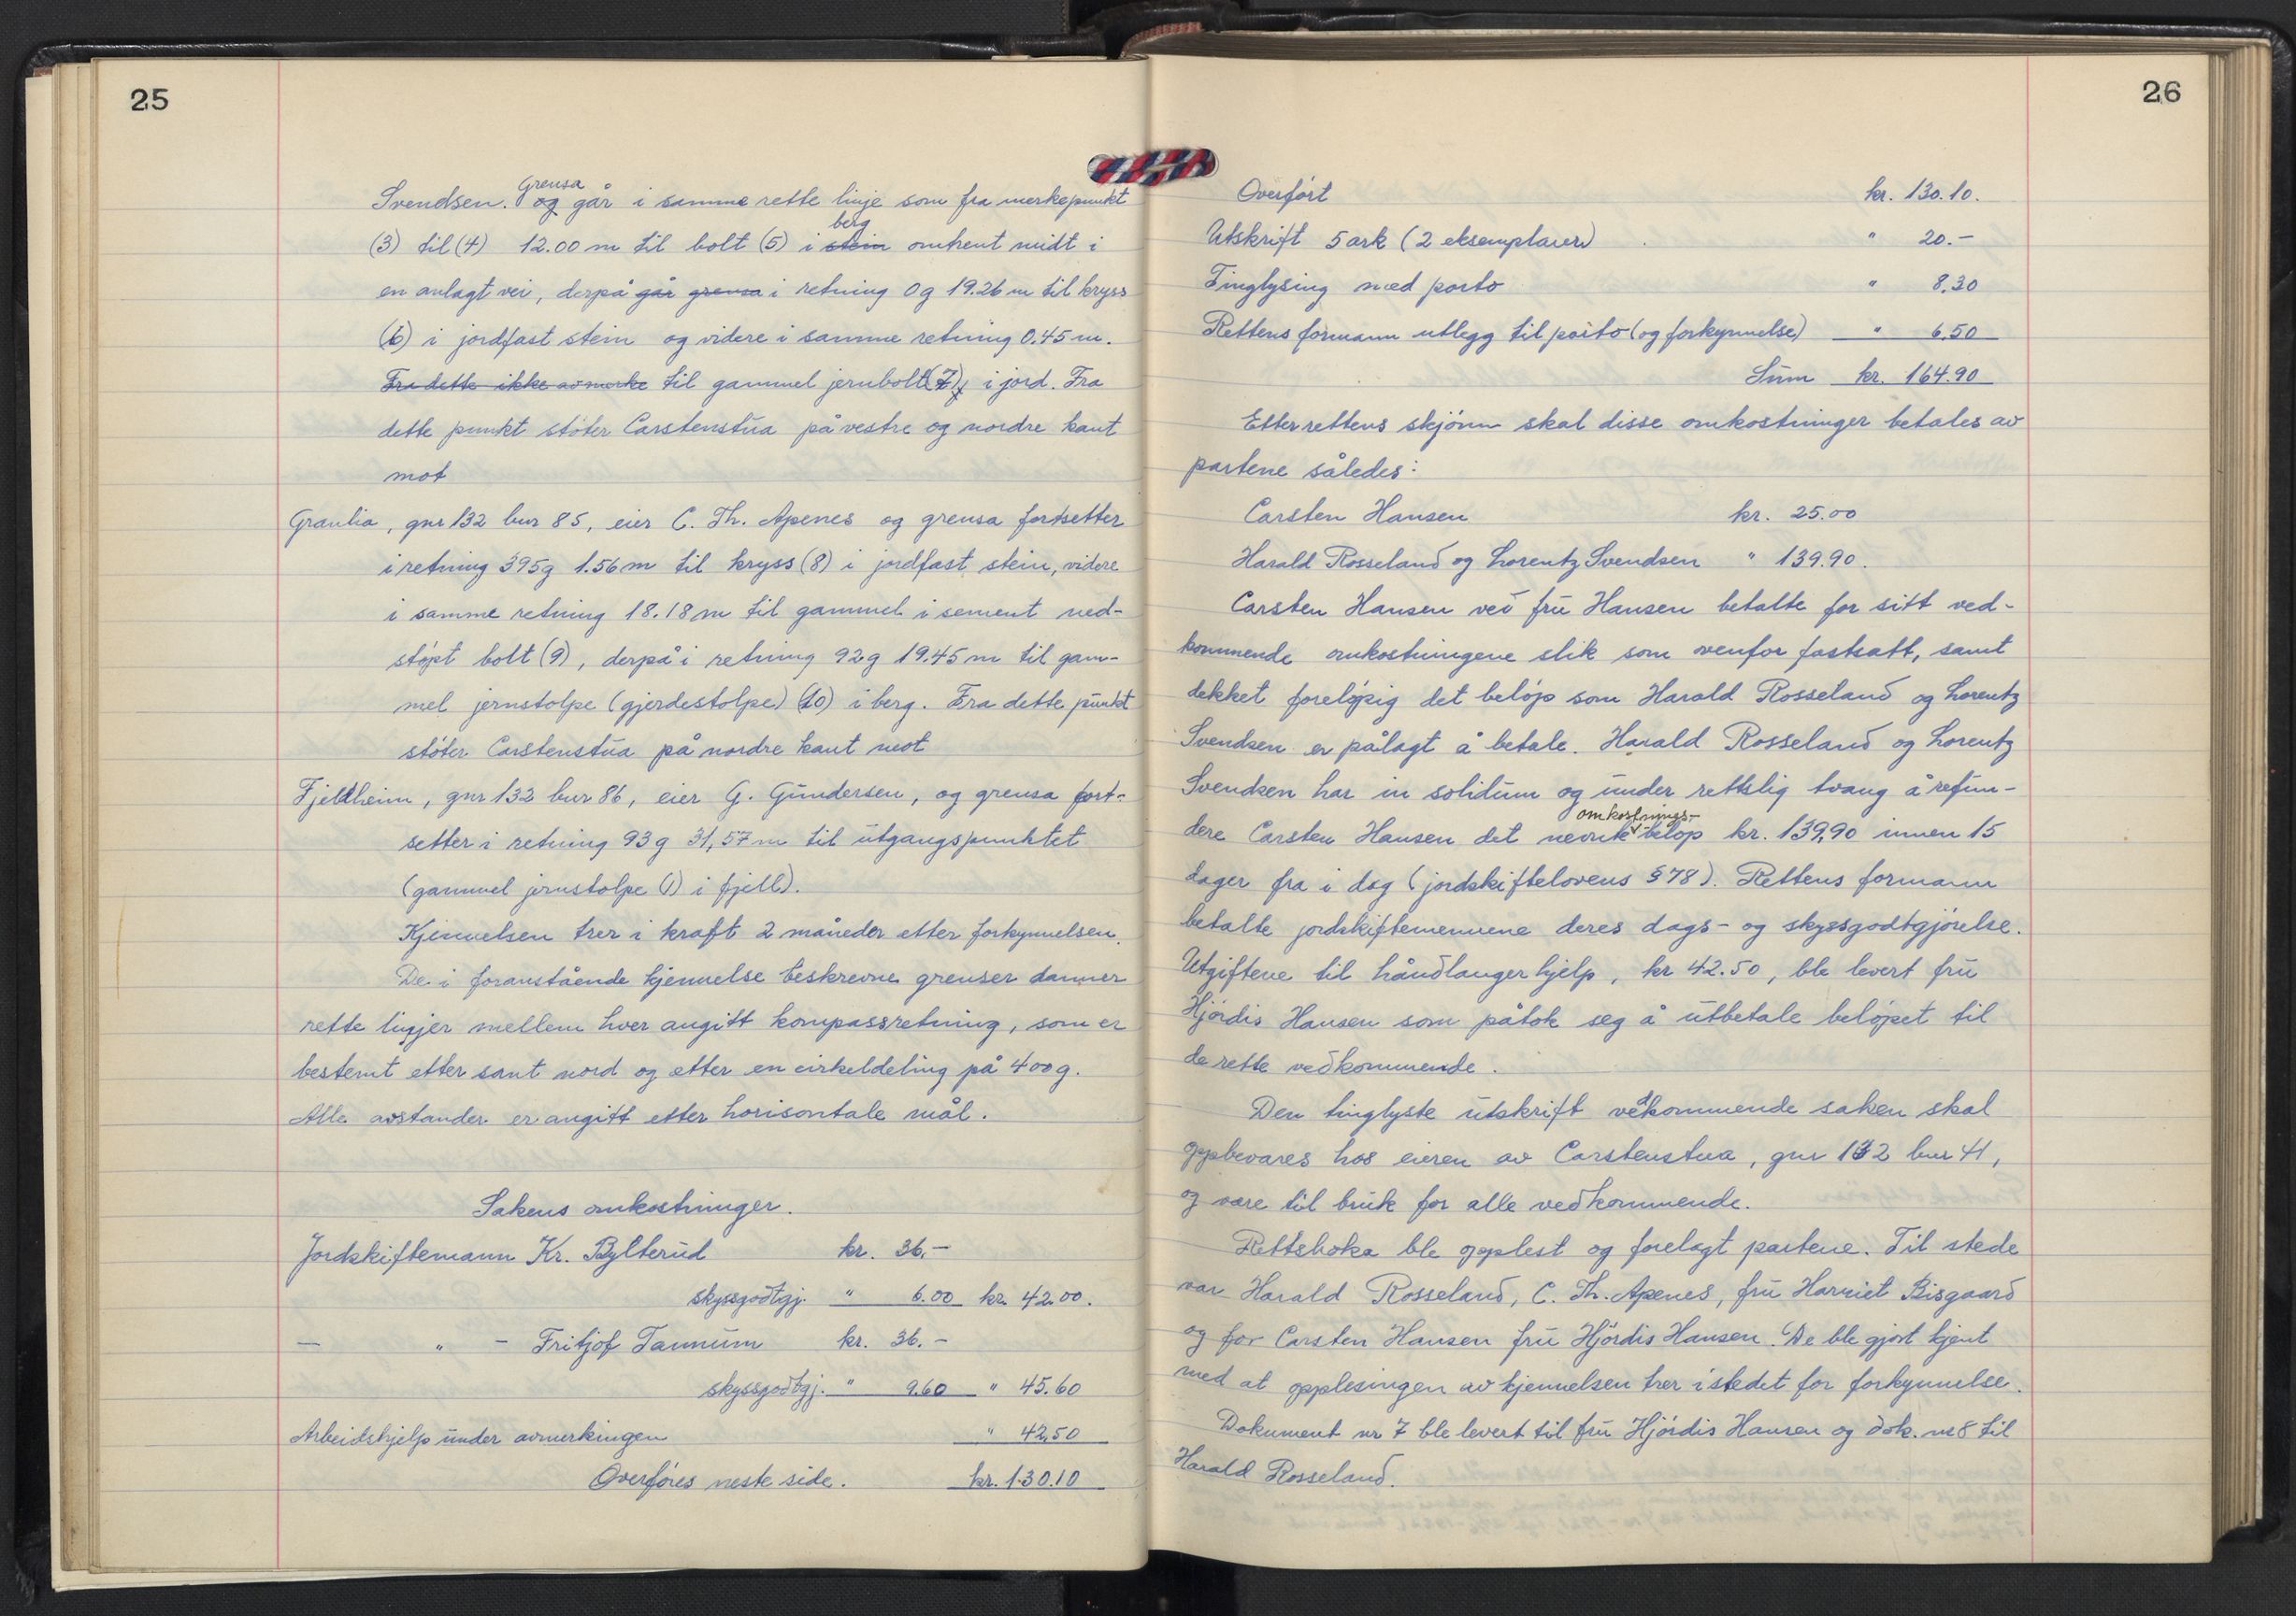 25
Svendsen. Grensa og går i samme rette linje som fra merkepunkt
(3) til (4) 12.00 m til bolt (5) i stein berg omtrent midt i
en anlagt vei, derpå går grensa i retning 0g 19.26 m til kryss
(6) i jordfast stein og videre i samme retning 0.45 m.
Fra dette ikke avmerke til gammel jernbolt (7), i jord. Fra
dette punkt støter Carstenstua på vestre og nordre kant
mot
Granlia, gnr 132 bnr 85, eier C. Th. Apenes og grensa fortsetter
i retning 395g 1.56 m til kryss (8) i jordfast stein, videre
i samme retning 18.18 m til gammel i sement ned-
støpt bolt (9), derpå i retning 92g 19.45 m til gam-
mel jernstolpe (gjerdestolpe) (10) i berg. Fra dette punkt
støter Carstenstua på nordre kant mot
Fjeldheim, gnr 132 bnr 86, eier G. Gundersen, og grensa fort-
setter i retning 93g 31,57 m til utgangspunktet
(gammel jernstolpe (1) i fjell).
Kjennelsen trer i kraft 2 måneder etter forkynnelsen.
De i foranstående kjennelse beskrevne grenser danner
rette linjer mellem hver angitt kompassretning, som er
bestemt etter sant nord og etter en cirkeldeling på 400g.
Alle avstander er angitt etter horisontale mål.
Sakens omkostninger.
Jordskiftemann Kr. Bylterud kr. 36.-
skyssgodtgj. " 6.00 kr. 42.00.
— " — Fritjof Tannum kr. 36.-
skyssgodtgj. " 9.60 " 45.60
Arbeidshjelp under avmerkingen " 42,50
Overføres neste side. kr. 130.10
26
Overført kr. 130.10.
Utskrift 5 ark (2 eksemplarer) " 20.-
Tinglysing med porto " 8.30
Rettens formann utlegg til porto (og forkynnelse) " 6.50
Sum kr. 164.90
Etter rettens skjønn skal disse omkostninger betales av
partene således:
Carsten Hansen kr. 25.00
Harald Rosseland og Lorentz Svendsen " 139.90.
Carsten Hansen ved fru Hansen betalte for sitt ved-
kommende omkostningene slik som ovenfor fastsatt, samt
dekket foreløpig det beløp som Harald Rosseland og Lorentz
Svendsen er pålagt å betale. Harald Rosseland og Lorentz
Svendsen har in solidum og under rettslig tvang å refun-
dere Carsten Hansen det nevnte omkostnings-beløp kr. 139,90 innen 15
dager fra i dag (jordskiftelovens § 78). Rettens formann
betalte jordskiftemennene deres dags- og skyssgodtgjørelse.
Utgiftene til håndlangerhjelp, kr 42.50, ble levert fru
Hjørdis Hansen som påtok seg å utbetale beløpet til
de rette vedkommende.
Den tinglyste utskrift vedkommende saken skal
oppbevares hos eieren av Carstenstua, gnr 132 bnr 41,
og være til bruk for alle vedkommende.
Rettsboka ble opplest og forelagt partene. Til stede
var Harald Rosseland, C. Th. Apenes, fru Harriet Bisgaard
og for Carsten Hansen fru Hjørdis Hansen. De ble gjort kjent
med at opplesingen av kjennelsen trer istedet for forkynnelse.
Dokument nr 7 ble levert til fru Hjørdis Hansen og dok. nr 8 til
Harald Rosseland.